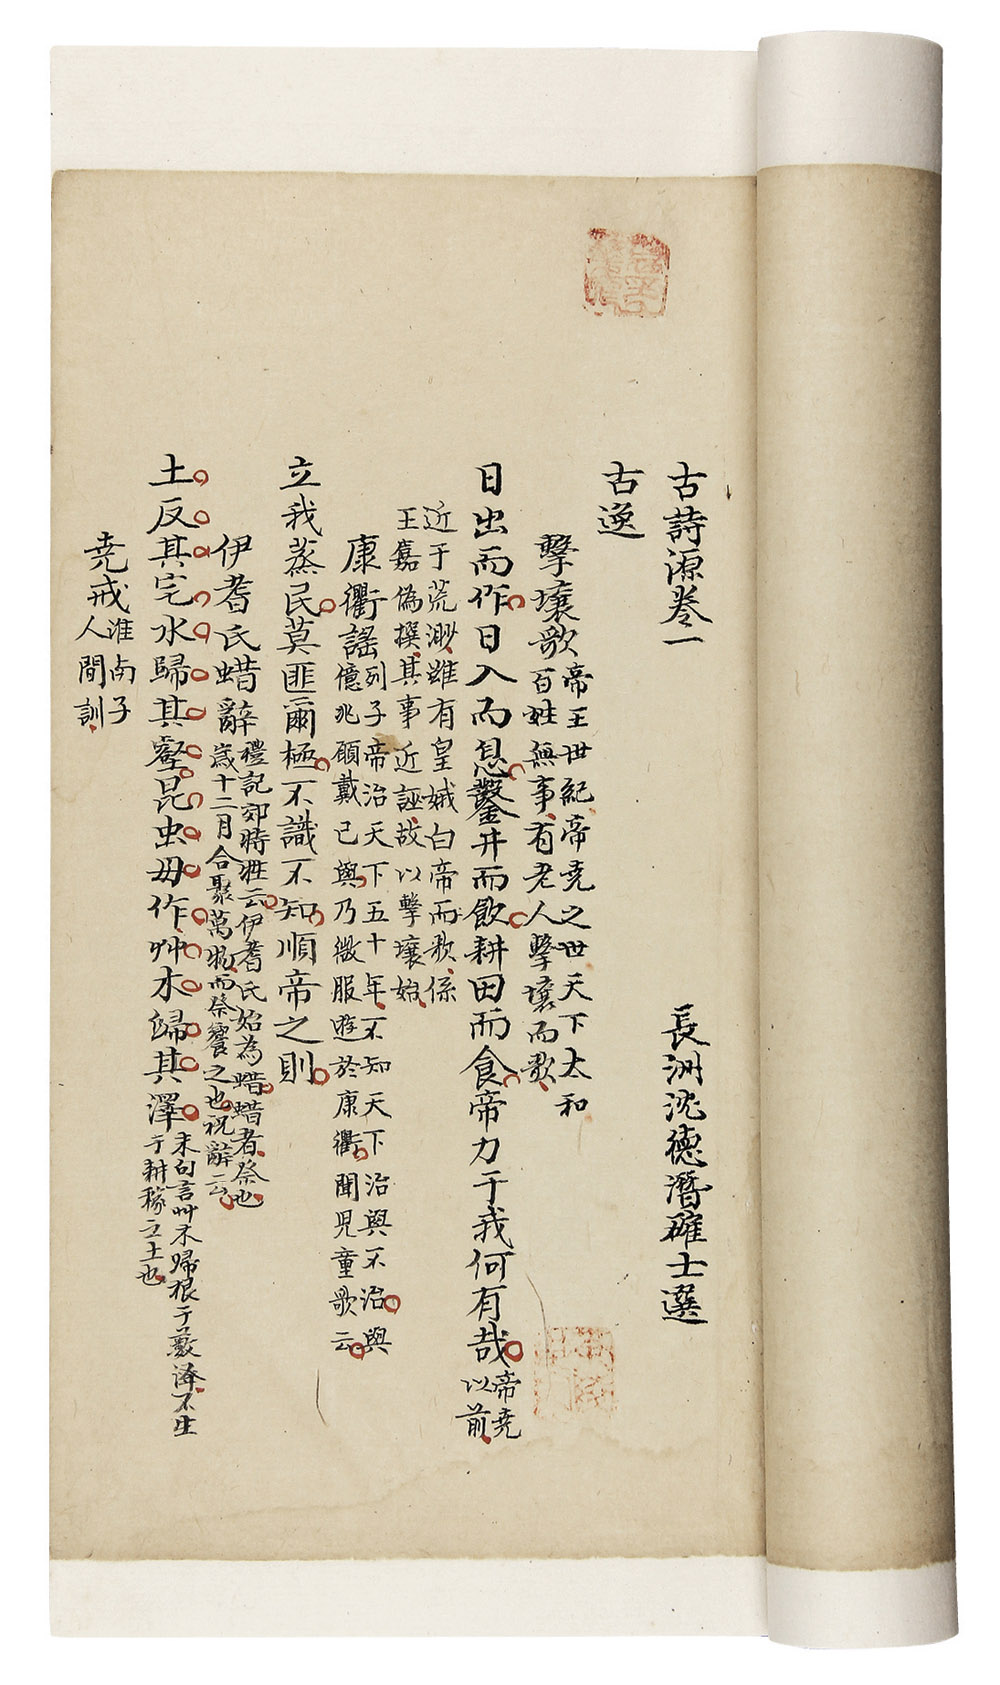 古詩源卷一
長洲沈德潛確士選
古逸
擊壤歌
帝王世紀帝堯之世天下太和
百姓無事有老人擊壤而歌
日出而作日入而息鑿井而飲耕田而食帝力于我何有哉
帝堯
以前
近于荒渺雖有皇娥白帝而歌係
王嘉偽撰其事近誣故以擊壤始
康衢謠
列子帝治天下五十年不知天下治與不治與
億兆願戴已與乃微服遊於康衢聞兒童歌云
立我蒸民莫匪爾極不識不知順帝之則
伊耆氏蜡辭
禮記郊特牲云伊耆氏始為蜡蜡者祭也
歲十二月合聚萬物而祭饗之也祝辭云
土反其宅水歸其壑昆虫毋作艸木歸其澤
末句言艸木歸根于藪澤不生
于耕稼之土也
堯戒
淮南子
人間訓